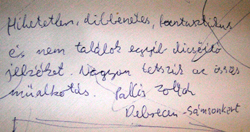 Hihetetlen, döbbenetes, fantasztikus
és nem találok egyéb dicsérő
jelzőket. Nagyon tetszik az összes
műalkotás. Pallós Zoltán
Debrecen-Sámsonkert